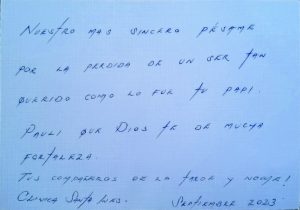 NUESTRO MAS SINCERO PÉSAME
POR LA PERDIDA DE UN SER TAN
QUERIDO COMO LO FUE TU PAPI.
PAULI QUE DIOS TE DE MUCHA
FORTALEZA.
TUS COMPAÑEROS DE LA TARDE Y NOCHE!
CLINICA SANTA INES. SEPTIEMBRE 2023